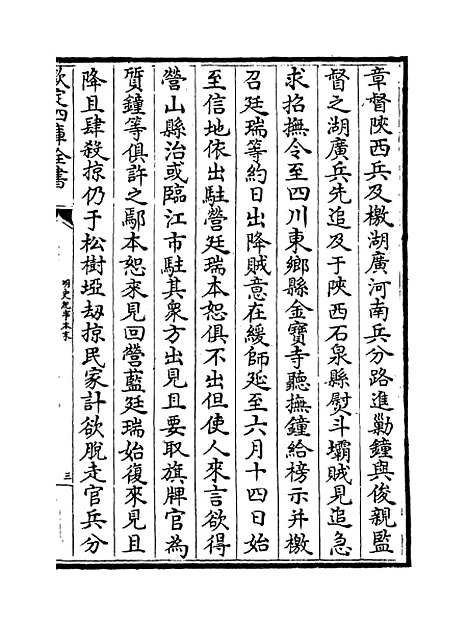 章督陜西兵及檄湖廣河南兵分路進勦鐘與俊親監
督之湖廣兵先追及于陜西石泉縣熨斗壩賊見追急
求招撫令至四川東鄉縣金寶寺聽撫鐘給榜示并檄
召廷瑞等約日出降賊意在緩師延至六月十四日始
至信地依出駐營廷瑞本恕俱不出但使人來言欲得
營山縣治或臨江市駐其衆方出見且要取旗牌官為
質鐘等俱許之鄢本恕來見回營藍廷瑞始復來見且
降且肆殺掠仍于松樹埡劫掠民家計欲脫走官兵分
欽定四庫全書
明史紀事本末
三